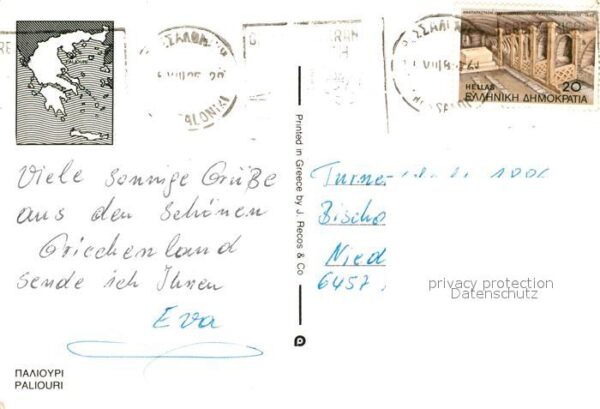 PALIOURI
HELLAS 20
ΕΛΛΗΝΙΚΗ ΔΗΜΟΚΡΑΤΙΑ
Viele sonnige Grüße
aus den Schönen
Griechenland
sende ich Ihnen
Eva
ΠΑΛΙΟΥΡΙ
PALIOURI
Printed in Greece by J. Recos & Co
Bischo
Nied
6457
privacy protection
Datenschutz